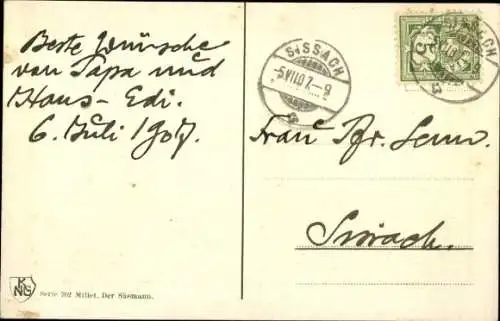 Beste Wünsche
von Papa und
Hans-Edi.
6. Juli 1907.
SISSACH
5
Frau Dr. Senn.
Sissach.
NG
Serie 702 Millet, Der Säemann.